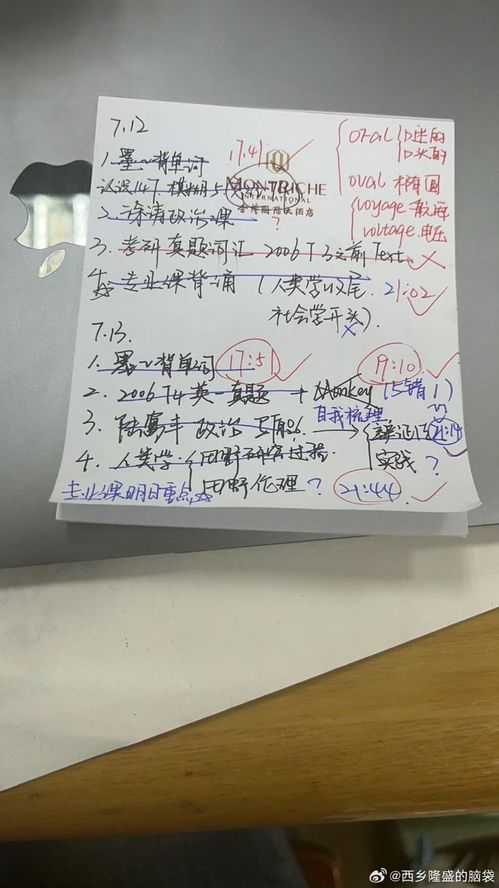 7.12
1. 墨~背单词 17:41
认识147 模糊5
MONTRICHE
INTERNATIONAL
2. 徐涛政治2课 ?
3. 考研真题词汇 2006 T3之前 Text
4. 专业课背诵 (人类学收尾 21:02
社会学开头)
oral 口述的
口头的
oval 椭圆
voyage 航海
voltage 电压
7.13
1. 墨~背单词 17:51 19:10
2. 2006 T4 英一真题 + Monkey (5错1)
自我梳理
3. 政治 辩证法
实践?
4. 人类学: 田野研究过程
田野伦理? 21:44
专业课明日重点
@西乡隆盛的脑袋